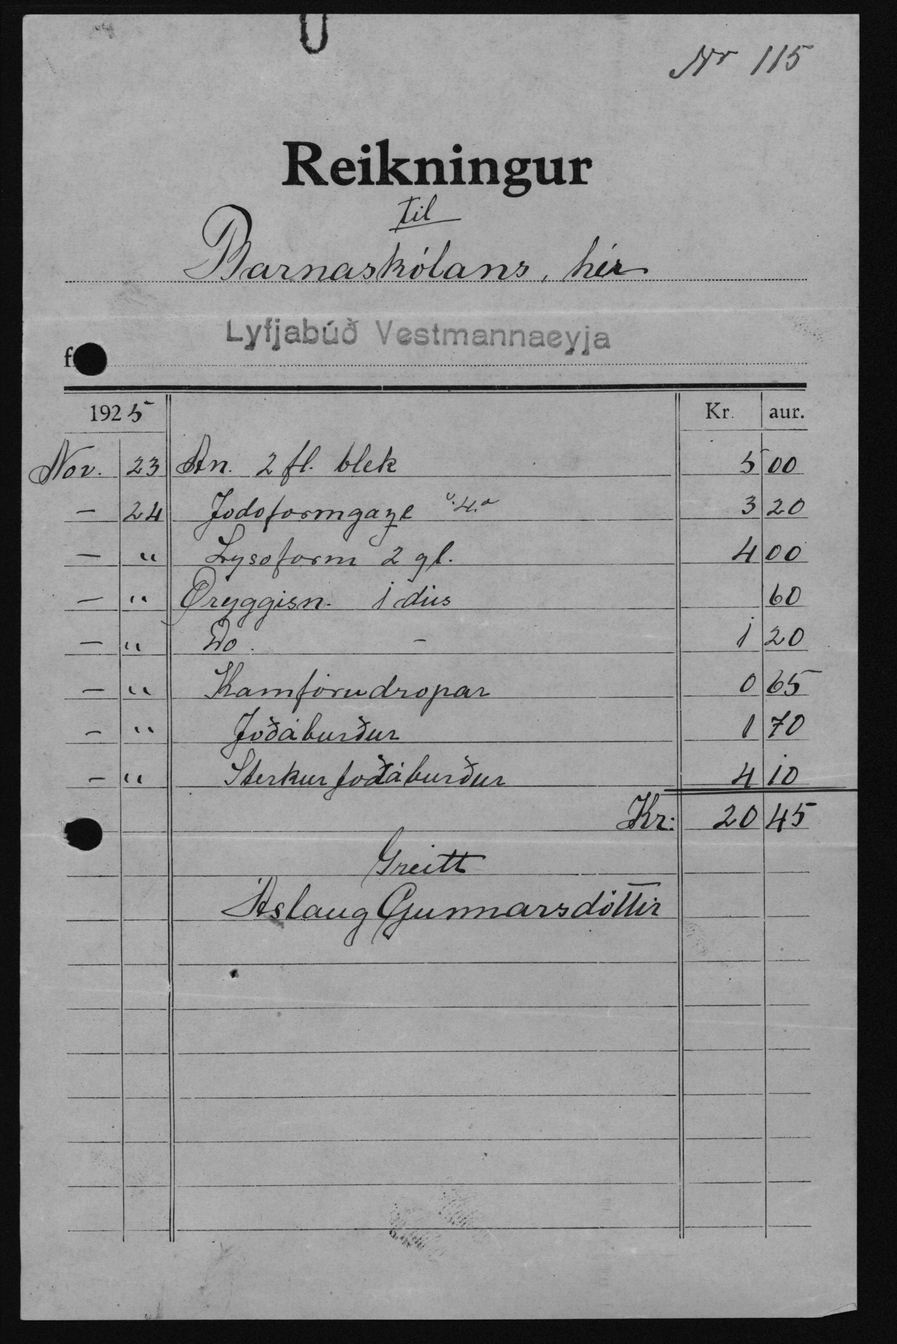 Nr 115
Reikningur
til
Barnaskólans, hér
Lyfjabúð Vestmannaeyja
f
1925 Kr. aur.
Nov. 23 An. 2 fl. blek 5 00
— 24 Jodoformgaze 3 20
— " Lysoform 2 gl. 4 00
— " Öryggisn. 1 dús 60
— " Do. — 1 20
— " Kamfórudropar 0 65
— " Joðáburður 1 70
— " Sterkur joðáburður 4 10
Kr: 20 45
Greitt
Áslaug Gunnarsdóttir